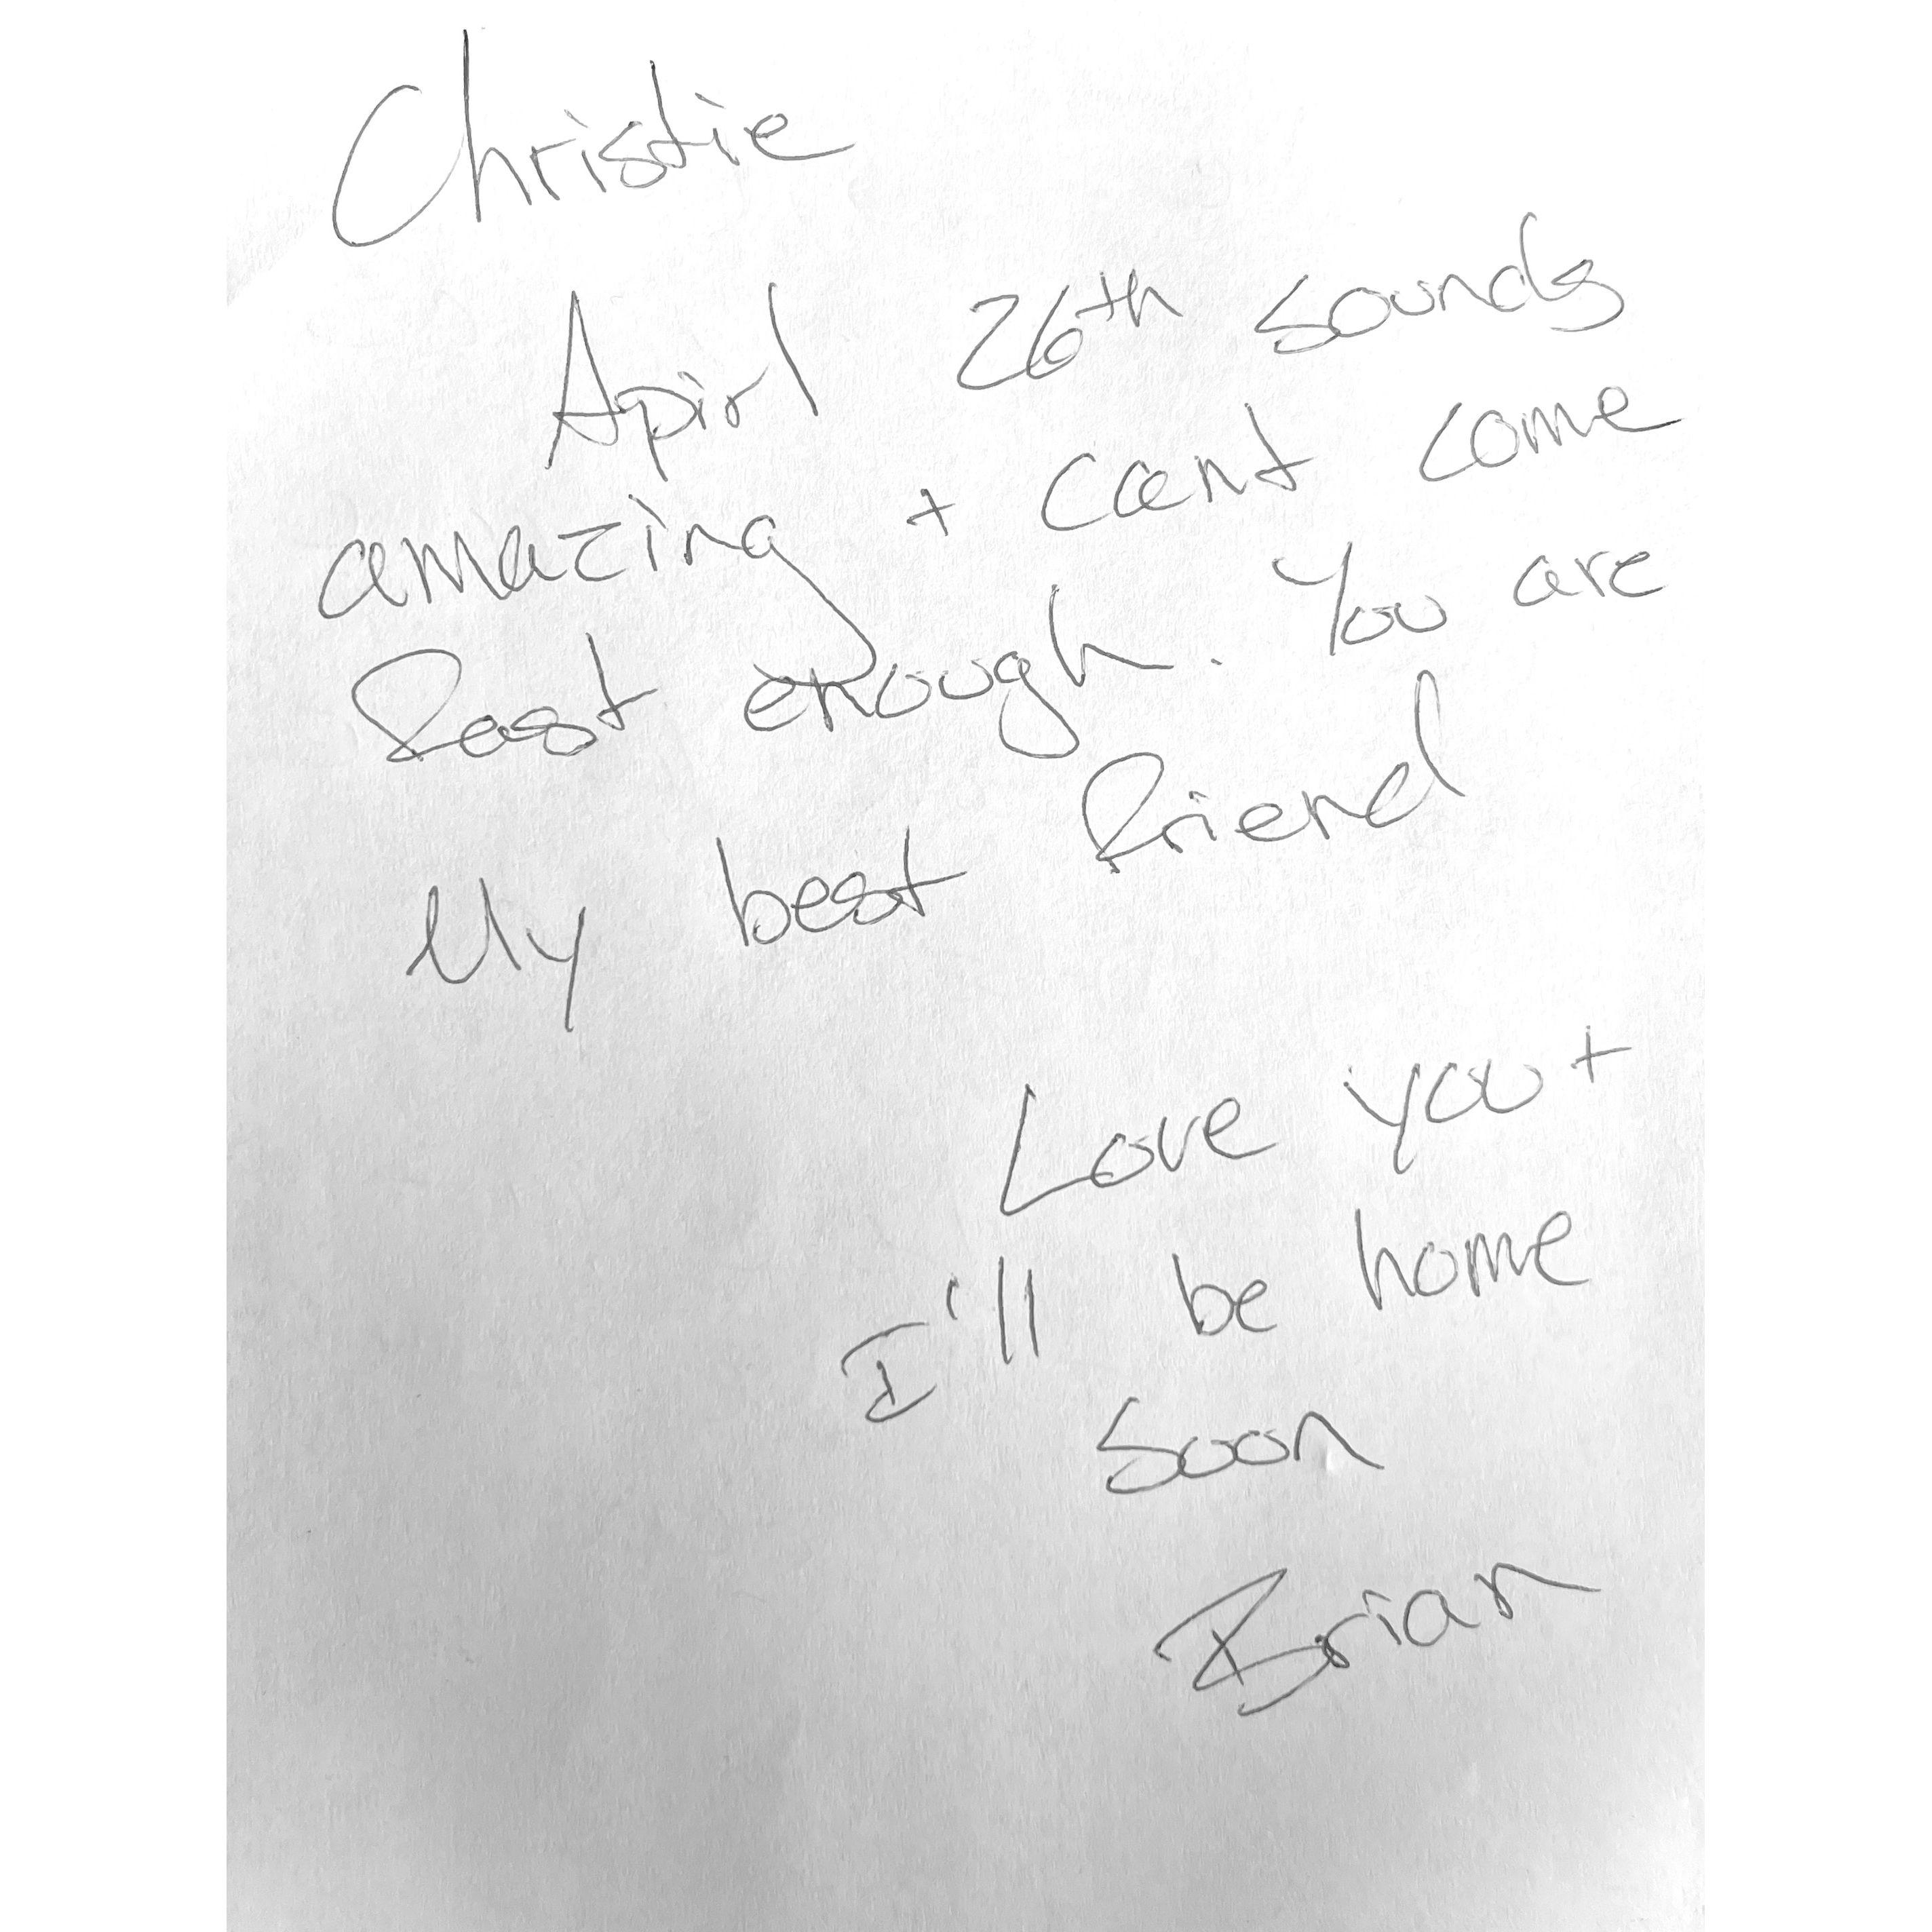 Christie
Apirl 26th sounds
amazing + cant come
fast enough. You are
My best friend
Love you +
I'll be home
soon
Brian